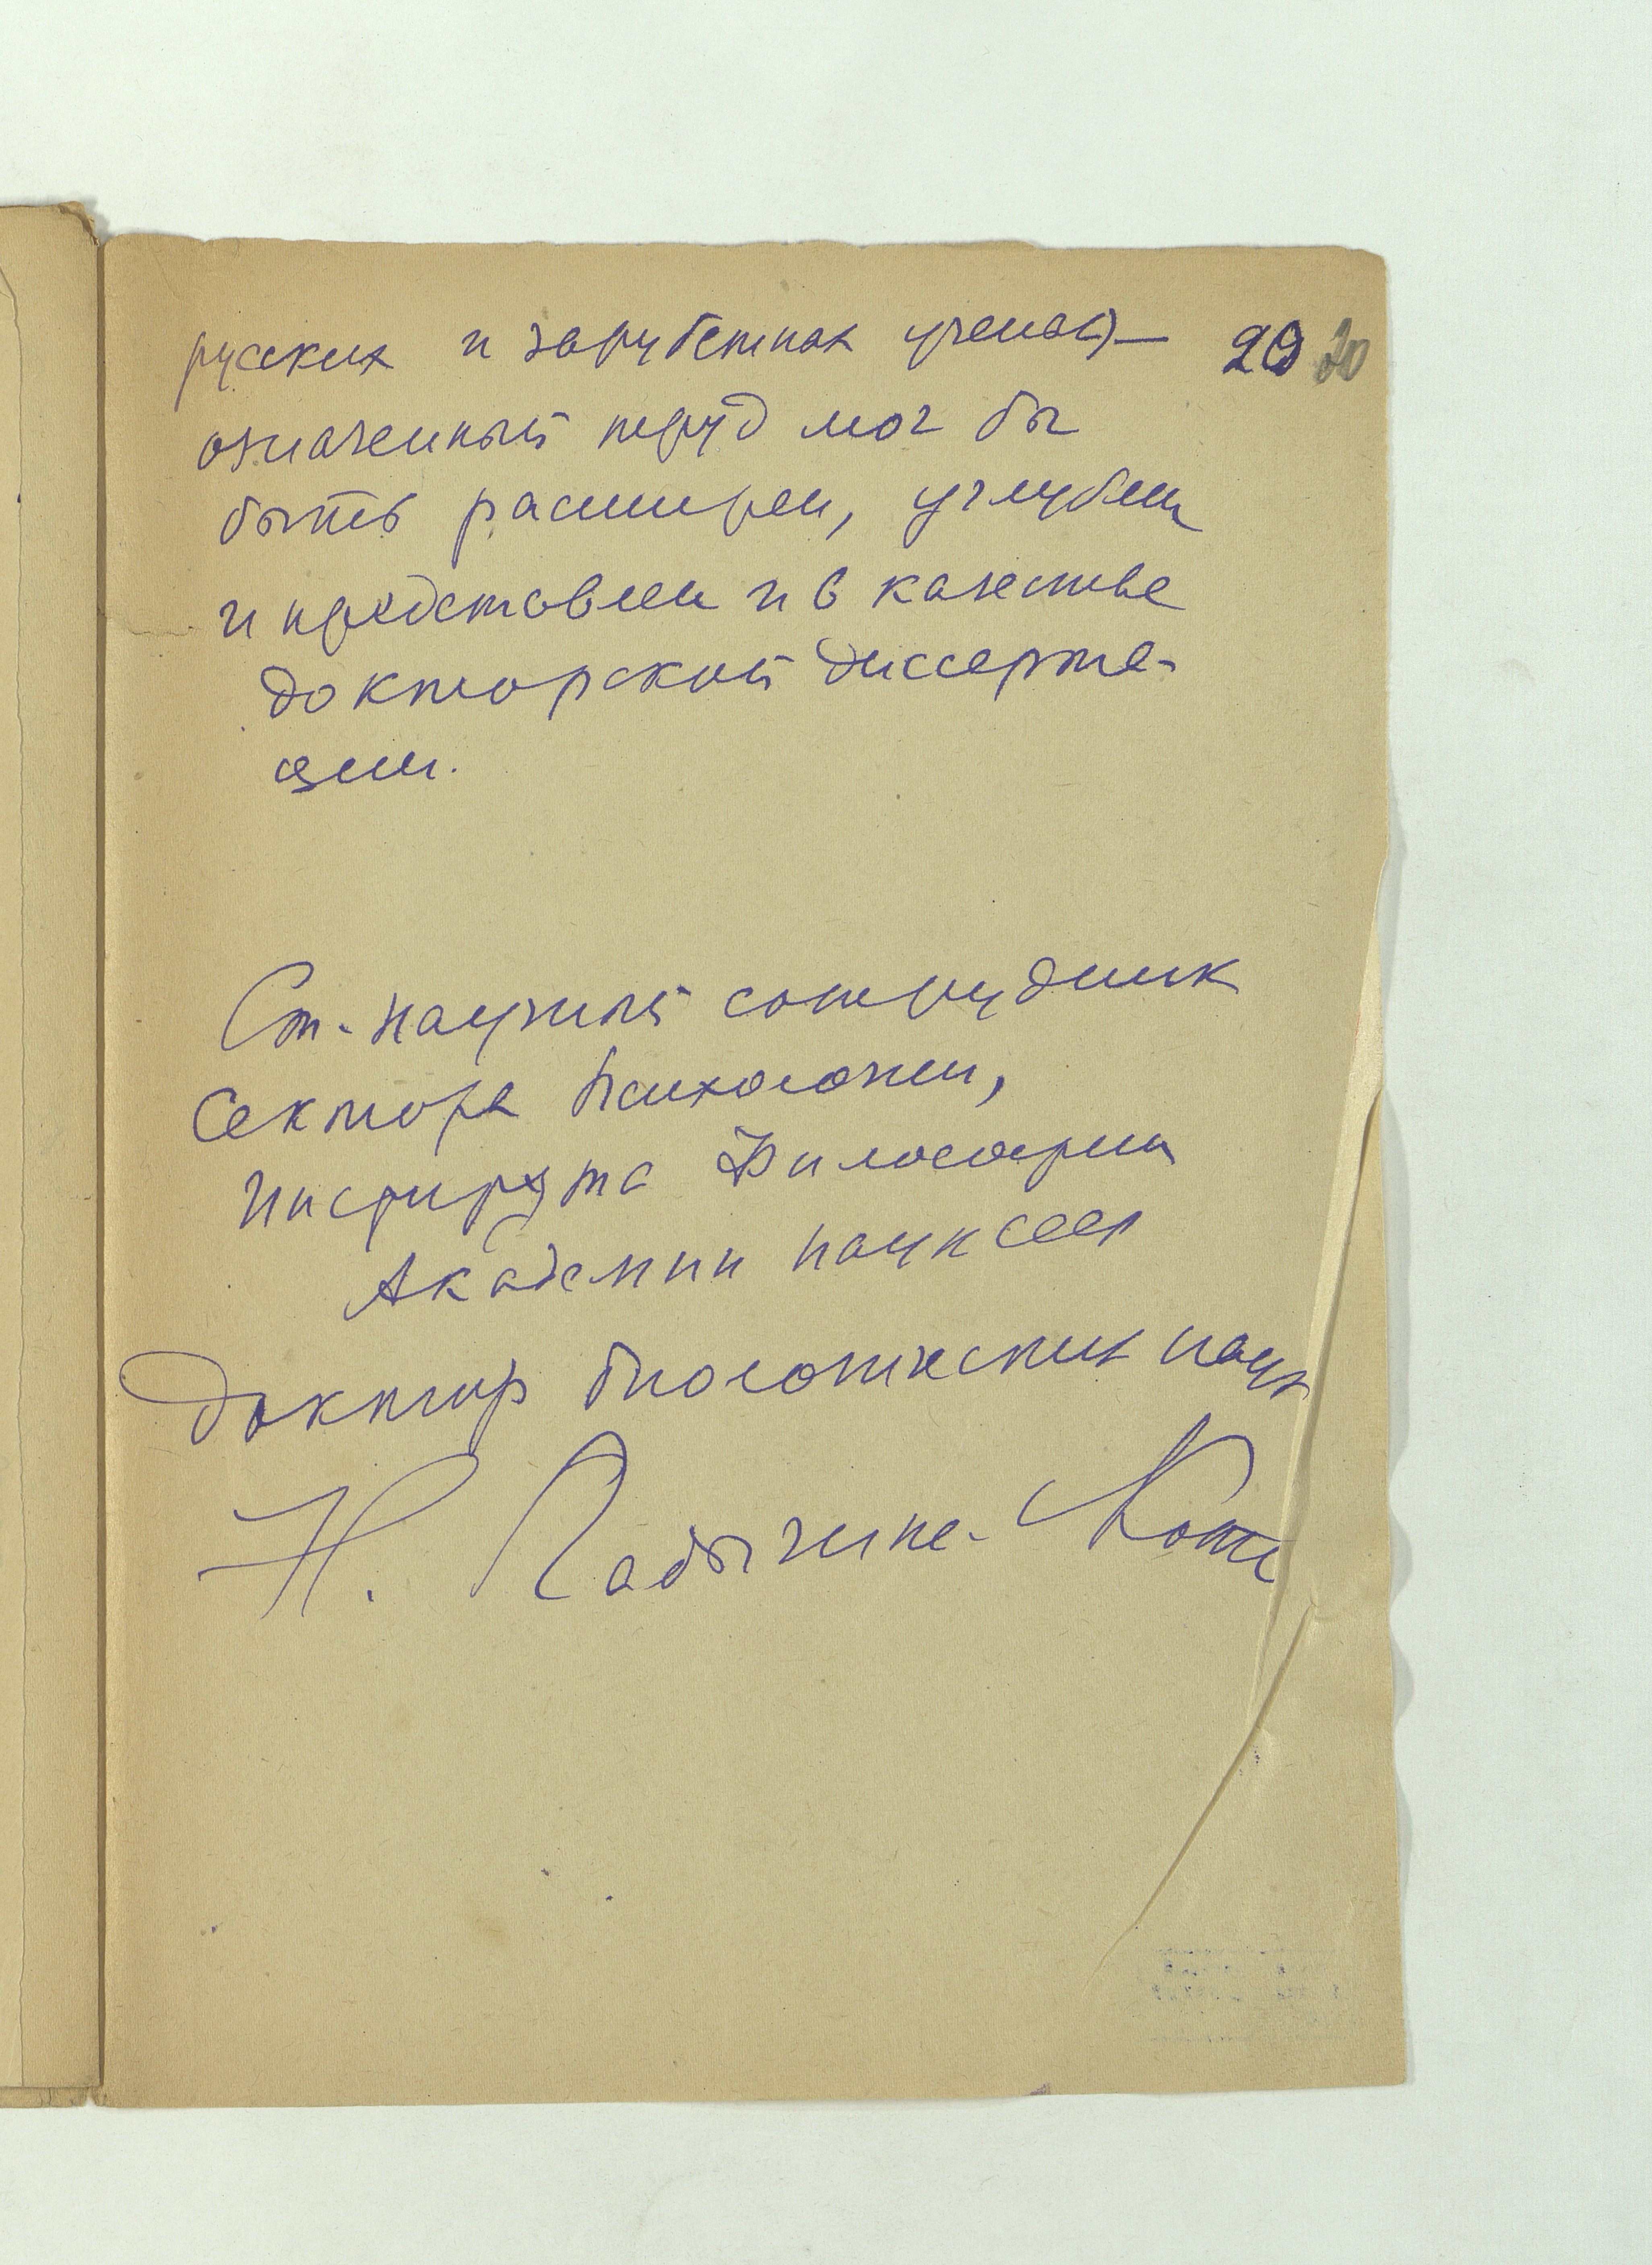 русских и зарубежных ученых) — 29 20
означенный труд мог бы
быть расширен, углублен
и представлен и в качестве
докторской диссерта-
ции.
Ст. научный сотрудник
Сектора Психологии,
Института Философии
Академии наук СССР
Доктор биологических наук
Н. Ладыгина-Котс